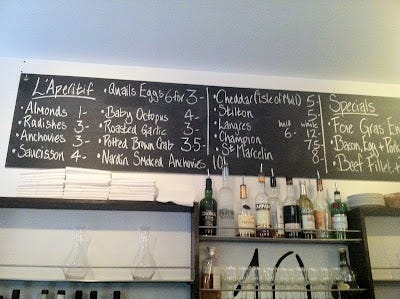 L'Aperitif
• Almonds 1-
• Radishes 3-
• Anchovies 3-
• Saucisson 4-
• Quails Eggs 6 for 3-
• Baby Octopus 4-
• Roasted Garlic 3-
• Potted Brown Crab 3.5-
• Nardin Smoked Anchovies 10-
• Cheddar (Isle of Mull) 5-
• Stilton 5-
• Langres half 6- whole 12-
• Champion 7.5-
• St Marcelin 8-
Specials
• Foie Gras En
• Bacon, Egg + Pork
• Beef Fillet +